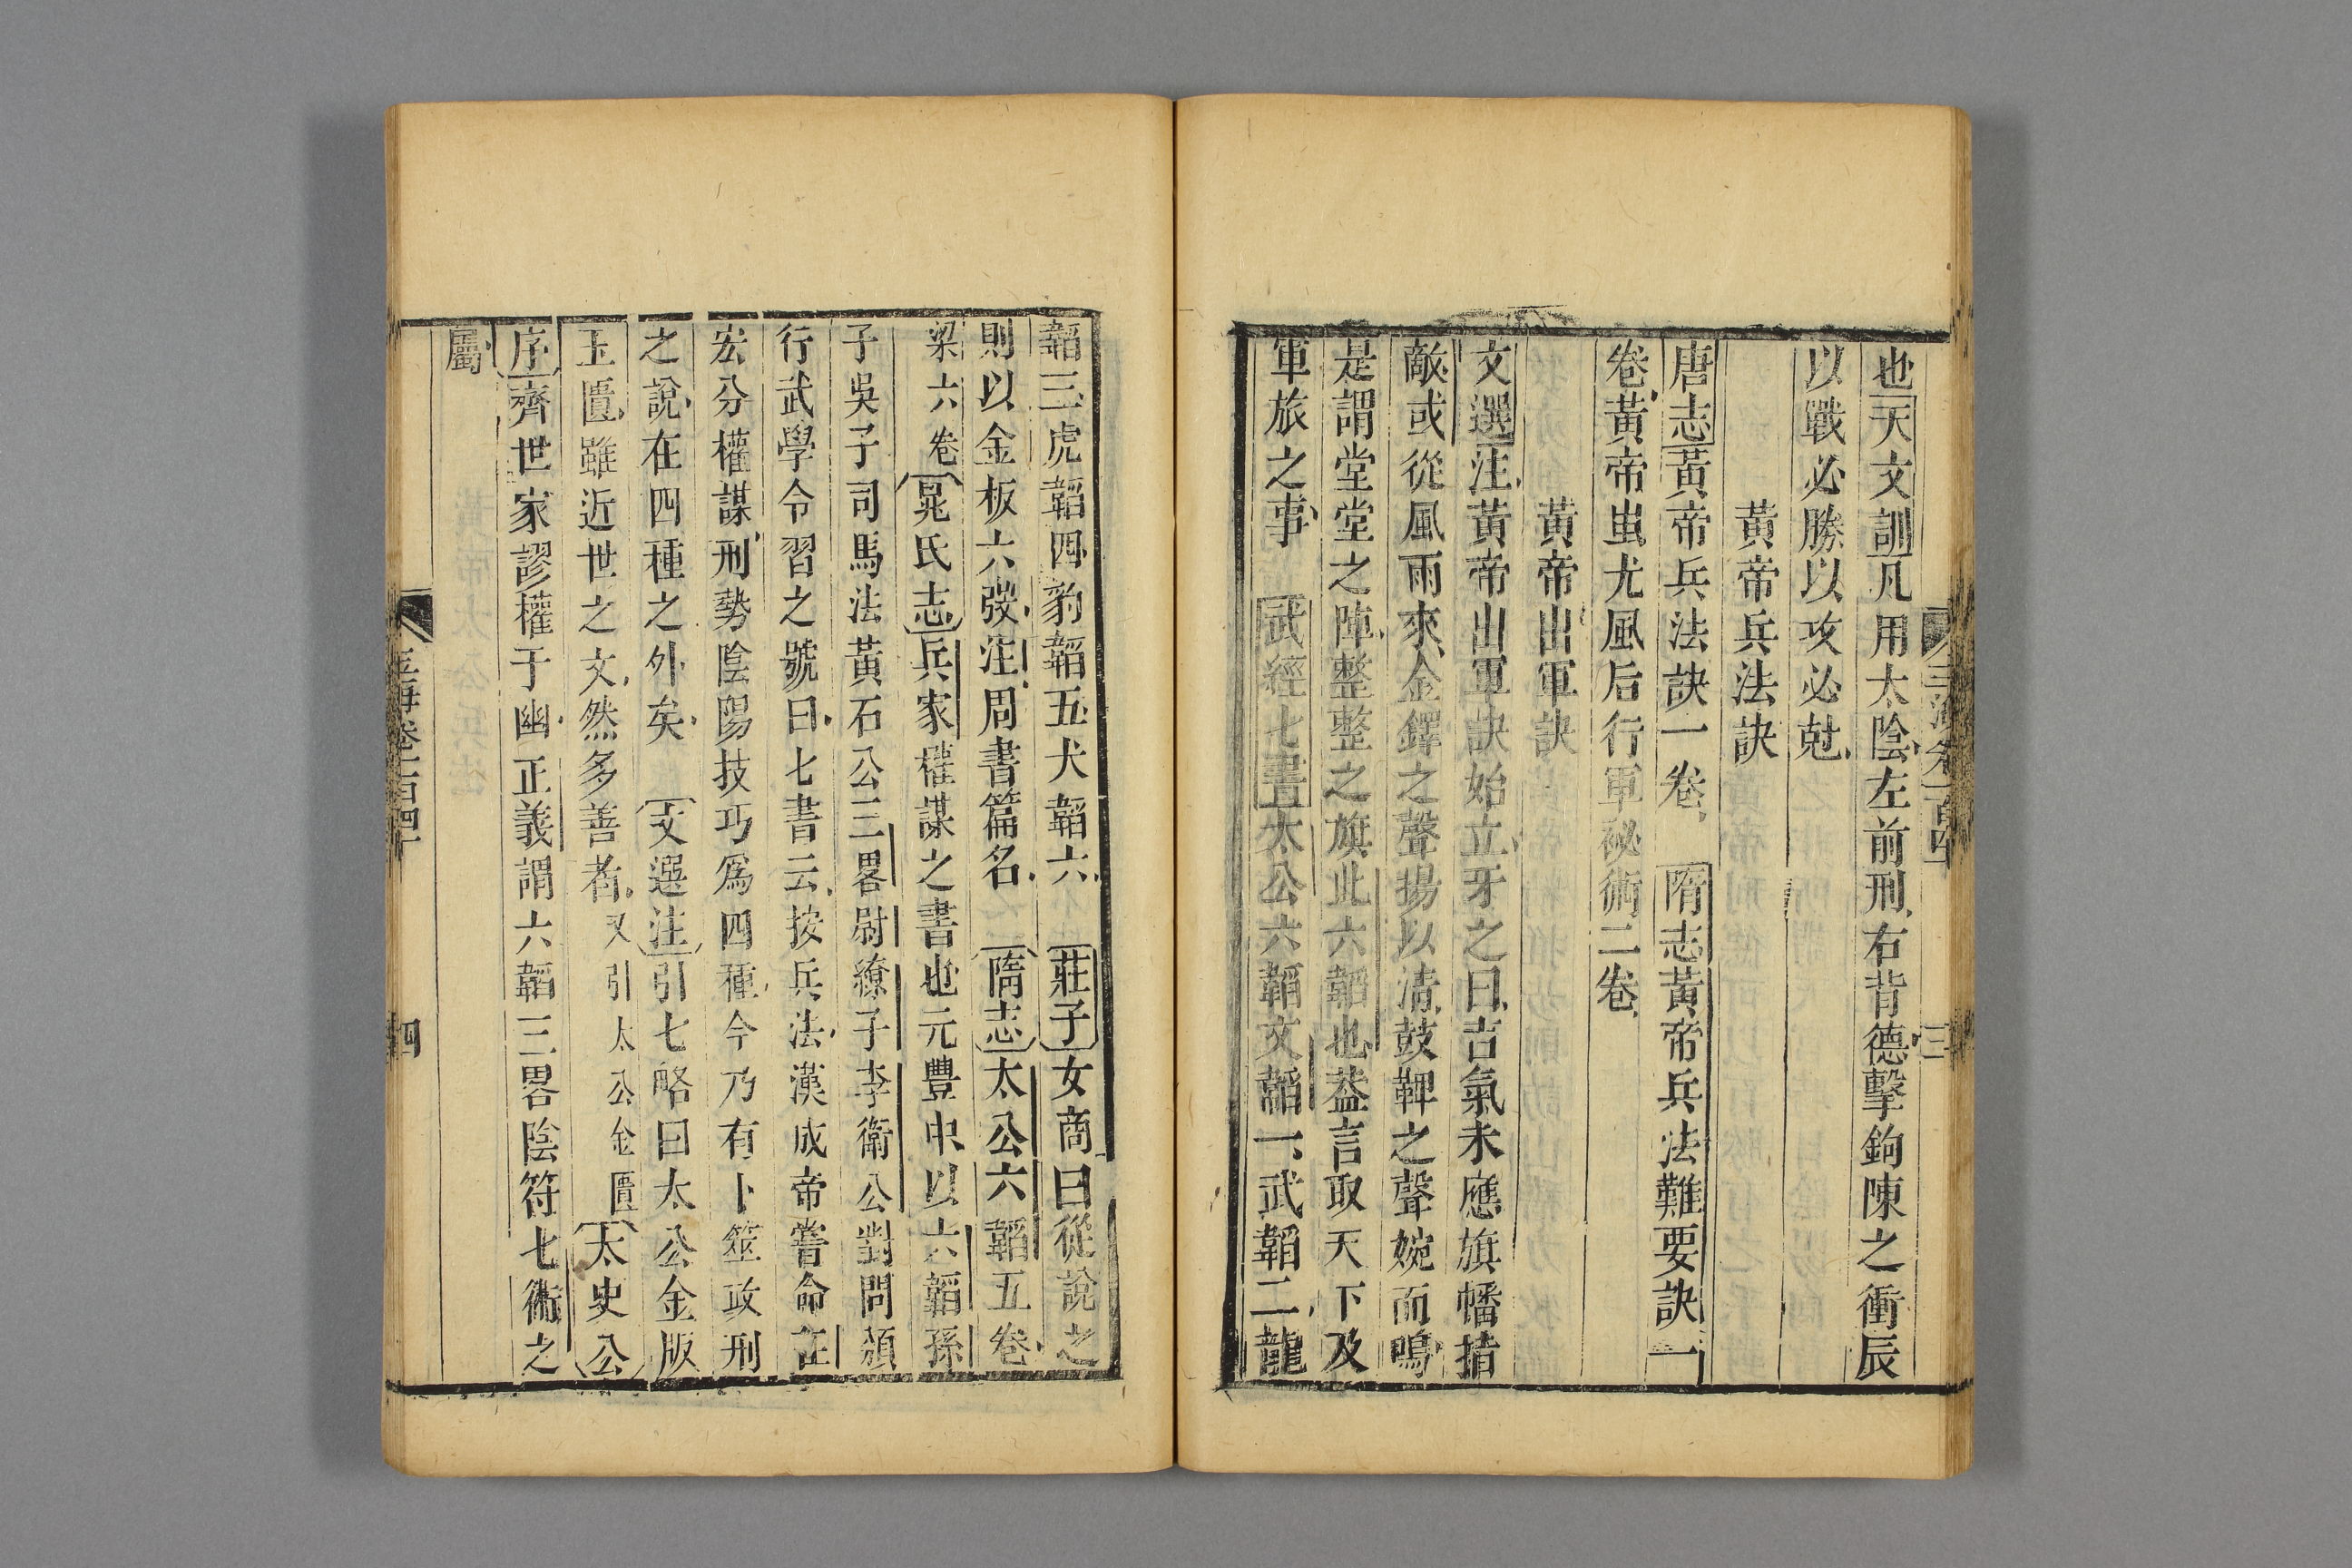 也天文訓凡用太陰左前刑右背德擊鉤陳之衝辰
以戰必勝以攻必尅
黃帝兵法訣
唐志黃帝兵法訣一卷 隋志黃帝兵法難要訣一
卷黃帝蚩尤風后行軍祕術二卷
黃帝出軍訣
文選注黃帝出軍訣始立牙之日吉氣未應旗幡揩
敵或從風雨來金鐸之聲揚以清鼓鞞之聲婉而鳴
是謂堂堂之陣整整之旗此六韜也蓋言取天下及
軍旅之事 武經七書太公六韜文韜一武韜二龍
韜三虎韜四豹韜五犬韜六 莊子女商曰從說之
則以金板六弢注周書篇名 隋志太公六韜五卷
梁六卷晁氏志兵家權謀之書也元豐中以六韜孫
子吳子司馬法黃石公三畧尉繚子李衛公對問頒
行武學令習之號曰七書云按兵法漢成帝嘗命任
宏分權謀刑勢陰陽技巧爲四種今乃有卜筮政刑
之說在四種之外矣 文選注引七略曰太公金版
玉匱雖近世之文然多善者又引太公金匱太史公
序齊世家謬權于幽正義謂六韜三畧陰符七術之
屬
玉海卷一百四十
三
四